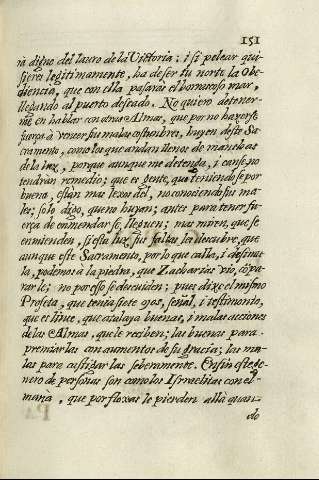 151
rà digno del lauro de la Uictoria; i si pelear qui-
sieres legitimamente, ha de ser tu norte la Obe-
diencia, que con ella pasaràs el borrascoso mar,
llegando al puerto deseado. No quiero detener-
me en hablar con otras Almas, que por no hazerse
fuerça à vencer sus malas costumbres, huyen deste Sa-
cramento, como los que andan llenos de manchas
de la luz, porque aunque me detenga, i canse, no
tendràn remedio; que es gente, que teniendose por
buena, estàn mas lexos del, no conociendo sus ma-
les; solo digo, que no huyan; antes para tener fu-
erça de enmendarse, lleguen; mas miren, que se
enmienden, si esta luz sus faltas la descubre, que
aunque este Sacramento, por lo que calla, i disimu-
la, podemos à la piedra, que Zacharias vio, cōpa-
rarlo; no por esso se descuiden; pues dixo el mismo
Profeta, que tenia siete ojos, señal, i testimonio,
que es lince, que atalaya buenas, i malas acciones
de las Almas, que le reciben; las buenas para
premiarlas con aumentos de su gracia; las ma-
las para castigarlas severamente. En fin este ge-
nero de personas son como los Israelitas con el
mana, que por floxas le pierden allà quan-
do